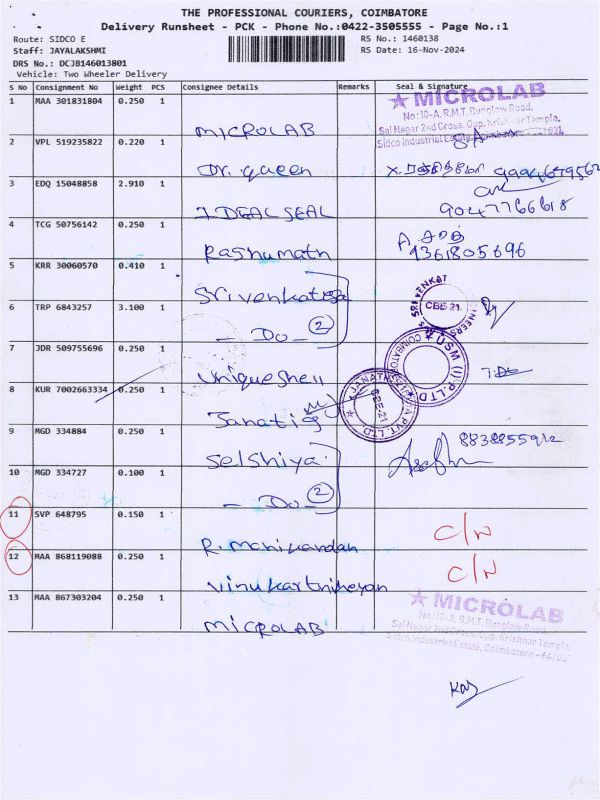 THE PROFESSIONAL COURIERS, COIMBATORE
Delivery Runsheet - PCK - Phone No.:0422-3505555 - Page No.:1
Route: SIDCO E RS No.: 1460138
Staff: JAYALAKSHMI RS Date: 16-Nov-2024
DRS No.: DCJB146013801
Vehicle: Two Wheeler Delivery
S No Consignment No Weight PCS Consignee Details Remarks Seal & Signature
1 MAA 301831804 0.250 1 MICROLAB
★ MICROLAB
No:10-A, R.M.T. Bunglow Road,
Sai Nagar 2nd Cross, Opp. Krishnar Temple,
Sidco Industrial Estate, Coimbatore
2 VPL 519235822 0.220 1 Dr. queen
3 EDQ 15048858 2.910 1 IDEAL SEAL
9047766618
4 TCG 50756142 0.250 1 Rashumath
9361805696
5 KRR 30060570 0.410 1 Srivenkatesa
SRI VENKAT
CBE-21
6 TRP 6843257 3.100 1 - Do - 2
7 JDR 509755696 0.250 1 Uniqueshell
USM (I) P.LTD
COIMBATORE
8 KUR 7002663334 0.250 1 Janatics
JANATICS
CBE-21
9 MGD 334884 0.250 1 Selshiya
10 MGD 334727 0.100 1 - Do - 2
11 SVP 648795 0.150 1 R. Manikandan C/N
12 MAA 868119088 0.250 1 Vinukarthikeyan C/N
13 MAA 867303204 0.250 1 MICROLAB
★ MICROLAB
No:10-A, R.M.T. Bunglow Road,
Sai Nagar 2nd Cross, Opp. Krishnar Temple,
Sidco Industrial Estate, Coimbatore - 641 021